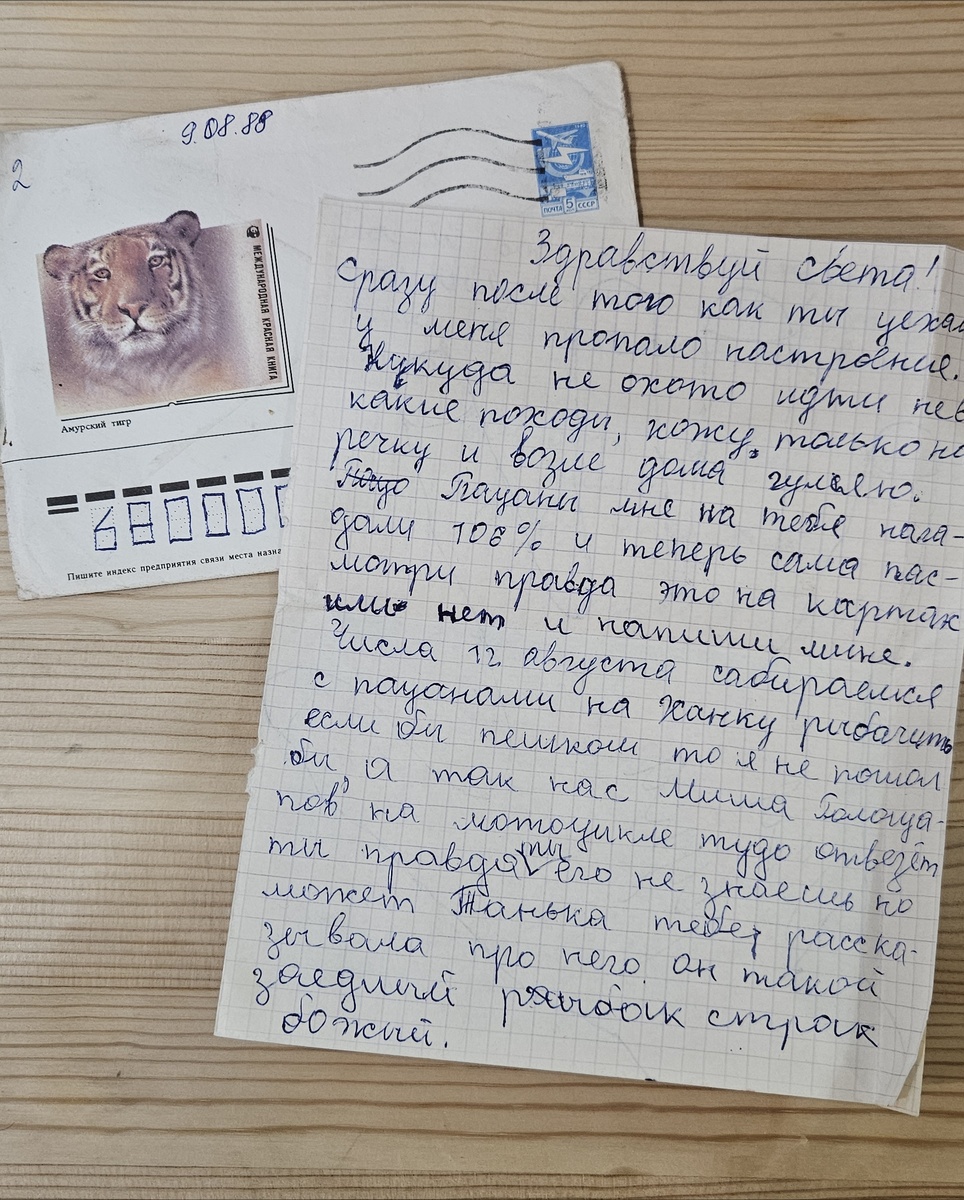 9.08.88
2
ПОЧТА 5 СССР
МЕЖДУНАРОДНАЯ КРАСНАЯ КНИГА
Амурский тигр
Пишите индекс предприятия связи места назна
Здравствуй света!
Сразу после того как ты уехал
у меня пропало настроение.
Никуда не охото идти нев
какие походы, хожу только на
речку и возле дома гуляю.
Пацаны мне на тебя нага-
дали 106% и теперь сама пас-
мотри правда это на картах
или нет и напиши мине.
Числа 12 августа сабираемся
с пацанами на Ханку рыбачить
если бы пешком то я не пошол
бы, а так нас Миша
пов на мотоцикле тудо отвезёт
ты правда ты его не знаешь но
может Танька тебе расска-
зывала про него он такой
заедлый рыбак страх
божый.